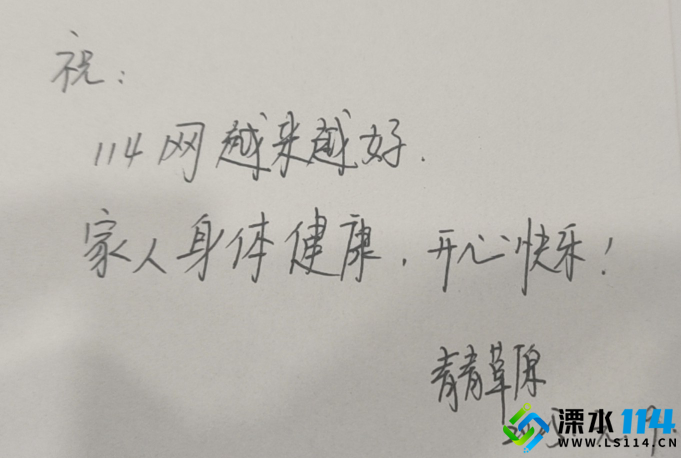 祝：
114网越来越好.
家人身体健康，开心快乐！
青青草原
溧水114
WWW.LS114.CN